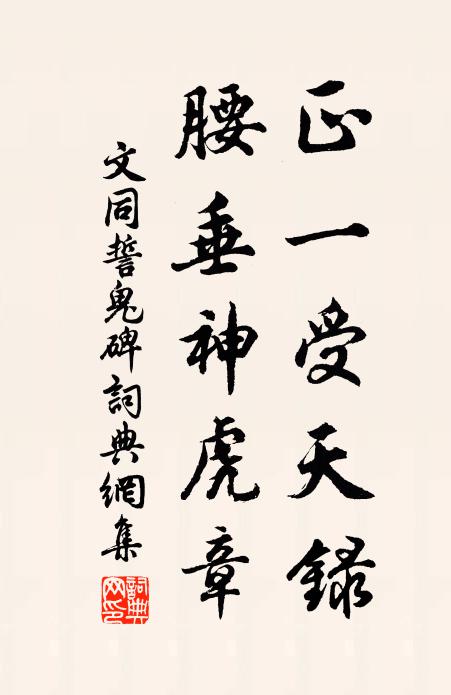 正一受天錄
腰垂神虎章
文同誓鬼碑詞典網集
詞典网印